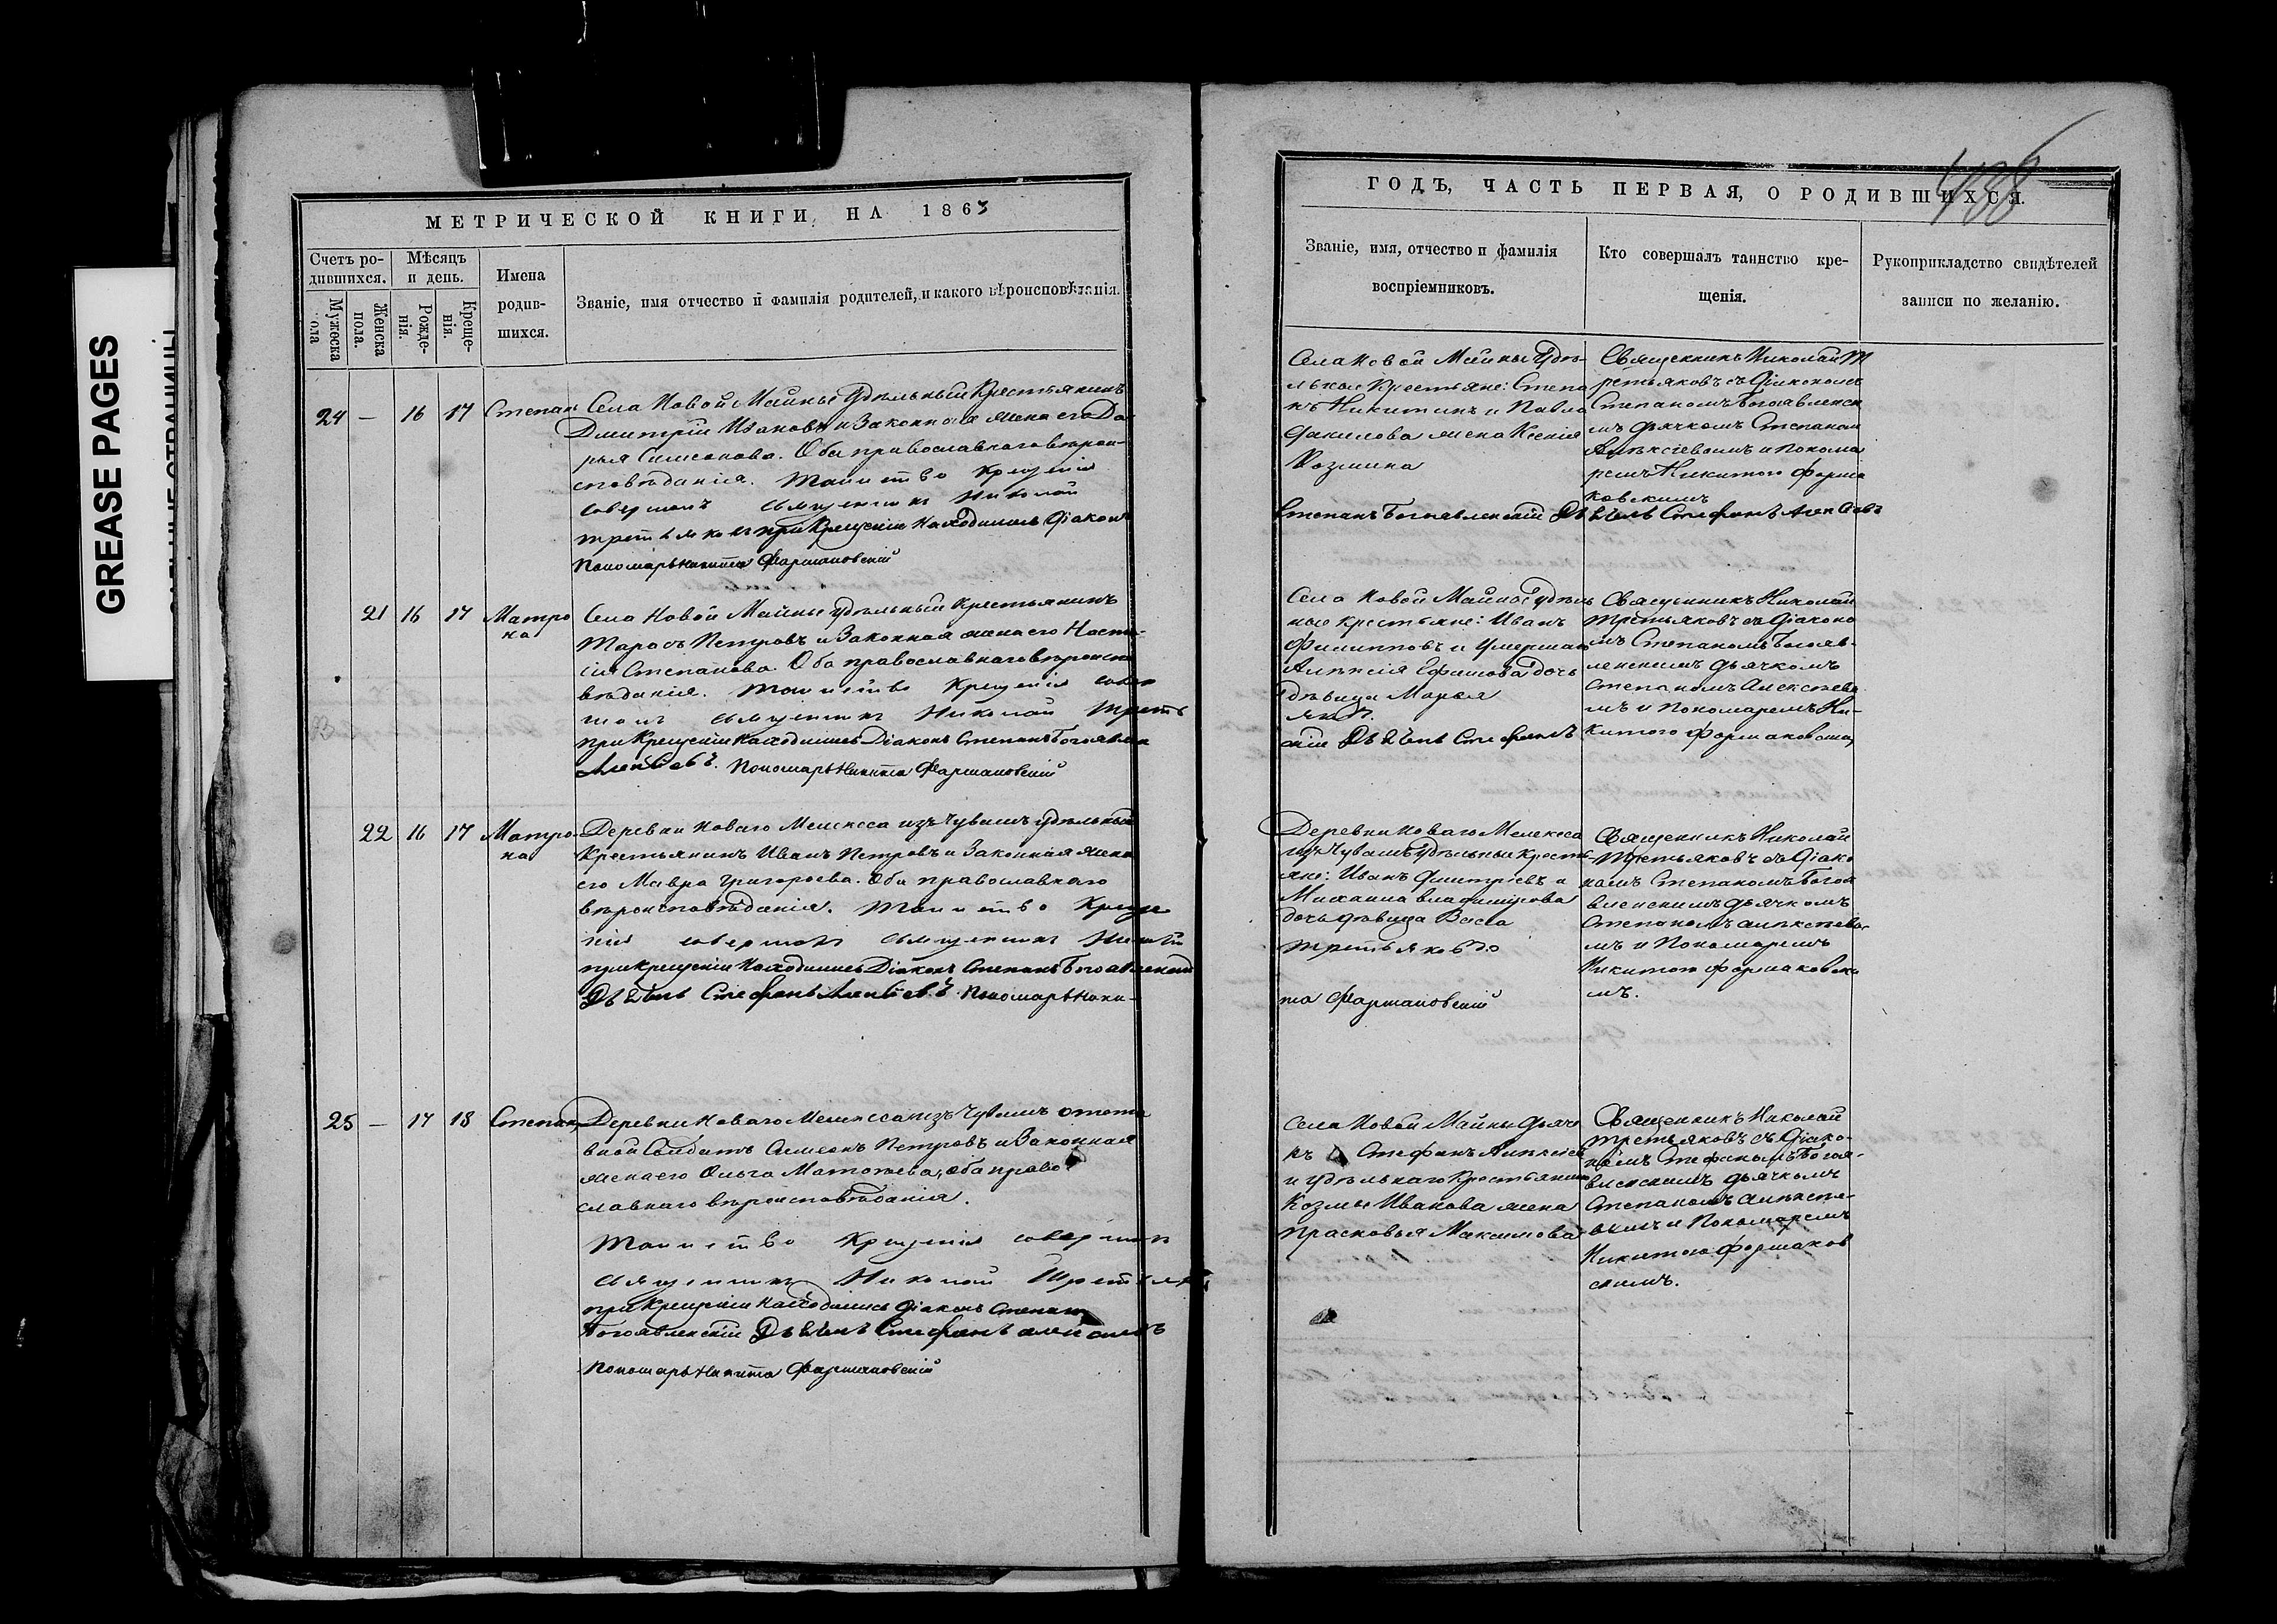 GREASE PAGES
МЕТРИЧЕСКОЙ КНИГИ НА 1863
Счетъ ро-
дившихся.
Мѣсяцъ
и день.
Мужеска
пола
Женска
пола.
Рожде-
нія.
Креще-
нія.
Имена
родив-
шихся.
Званіе, имя отчество и фамилія родителей, и какого вѣроисповѣданія.
24 — 16 17 Степан
Села Новой Майны Удѣльный Крестьянинъ
Дмитрій Ивановъ и Законная жена его Да
рья Симеонова. Оба православнаго вѣрои-
сповѣданія. Таинство Крещенія
совершалъ священникъ Николай
Третьяковъ при Крещеніи Находились Діаконъ
Пономарь Никита Фармаковскій
21 16 17 Матро
на
Села Новой Майны удѣльный Крестьянинъ
Тарасъ Петровъ и Законная жена его Наста-
сія Степанова. Оба православнаго вѣроиспо
вѣданія. Таинство Крещенія совер
шалъ священникъ Николай Треть
при Крещеніи находились Діаконъ Степанъ Богоявлен
Алексѣевъ. Пономарь Никита Фармаковскій
22 16 17 Матро-
на
Деревни Новаго Мелекеса изъ Чувашъ удѣльный
Крестьянинъ Иванъ Петровъ и Законная жена
его Мавра Григорьева. Оба православнаго
вѣроисповѣданія. Таинство Креще
нія совершалъ священникъ Николай
при Крещеніи Находились Діаконъ Степанъ Богоявленскій
Дьячекъ Стефанъ Алексѣевъ. Пономарь Ники-
25 — 17 18 Степан
Деревни Новаго Мелекеса изъ Чувашъ отста
вной Солдатъ Симеонъ Петровъ и Законная
жена его Ольга Матвѣева, оба право
славнаго вѣроисповѣданія.
Таинство Крещенія совершалъ
священникъ Николай Третьяк
при Крещеніи Находились Діаконъ Степанъ
Богоявленскій Дьячекъ Стефанъ Алексѣевъ
Пономарь Никита Фармаковскій
ГОДЪ, ЧАСТЬ ПЕРВАЯ, О РОДИВШИХСЯ.
488
Званіе, имя, отчество и фамилія
воспріемниковъ.
Кто совершалъ таинство кре-
щенія.
Рукоприкладство свидѣтелей
записи по желанію.
Села Новой Майны Удѣ-
льные Крестьяне: Степа
нъ Никитинъ и Павла
Данилова жена Ксенія
Козмина
Степанъ Богоявленскій Дьячекъ Стефанъ Алексѣевъ
Священникъ Николай Т
ретьяковъ съ Діакономъ
Степаномъ Богоявленск
имъ дьячкомъ Степаном
Алексѣевымъ и Понома
ремъ Никитою Фарма
ковскимъ
Села Новой Майны Удѣль
ные крестьяне: Иванъ
Филипповъ и Умершаго
Алексія Ефимова дочь
дѣвица Марья
яковъ.
скій Дьячекъ Стефанъ
Священникъ Николай
Третьяковъ съ Діаконо
мъ Степаномъ Богояв-
ленскимъ дьячкомъ
Степаномъ Алексѣевы
мъ и Пономаремъ Ни-
китою Фармаковским
Деревни Новаго Мелекеса
изъ Чувашъ Удѣльные Кресть-
яне: Иванъ Дмитріевъ и
Михаила Владимірова
дочь дѣвица Васса
Третьяковъ
та Фармаковскій
Священникъ Николай
Третьяковъ съ Діако
номъ Степаномъ Богоя
вленскимъ дьячкомъ
Степаномъ Алексѣевы
мъ и Пономаремъ
Никитою Фармаковски
мъ.
Села Новой Майны Дьяче
къ Стефанъ Алексѣев
и Удѣльнаго Крестьянина
Козмы Иванова жена
Прасковья Максимова
Священникъ Николай
Третьяковъ съ Діако-
номъ Стефаномъ Богоя-
вленскимъ дьячкомъ
Степаномъ Алексѣе-
вымъ и Пономаремъ
Никитою Фармаков
скимъ.